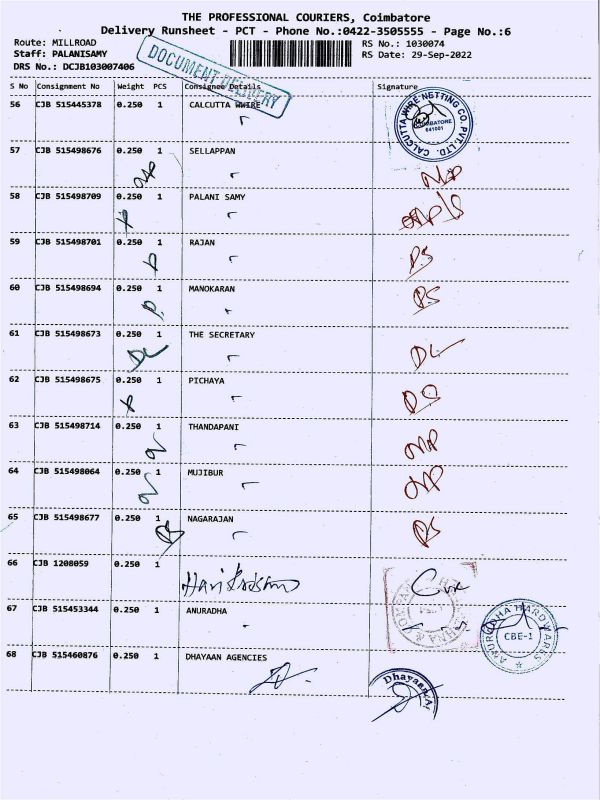 THE PROFESSIONAL COURIERS, Coimbatore
Delivery Runsheet - PCT - Phone No.:0422-3505555 - Page No.:6
Route: MILLROAD
RS No.: 1030074
Staff: PALANISAMY
RS Date: 29-Sep-2022
DRS No.: DCJB103007406
DOCUMENT DELIVERY
S No Consignment No Weight PCS Consignee Details Signature
56 CJB 515445378 0.250 1 CALCUTTA WWIRE
CALCUTTA WIRE NETTING CO. PVT. LTD.
COIMBATORE
641001
57 CJB 515498676 0.250 1 SELLAPPAN
58 CJB 515498709 0.250 1 PALANI SAMY
59 CJB 515498701 0.250 1 RAJAN
60 CJB 515498694 0.250 1 MANOKARAN
61 CJB 515498673 0.250 1 THE SECRETARY
62 CJB 515498675 0.250 1 PICHAYA
63 CJB 515498714 0.250 1 THANDAPANI
64 CJB 515498064 0.250 1 MUJIBUR
65 CJB 515498677 0.250 1 NAGARAJAN
66 CJB 1208059 0.250 1
67 CJB 515453344 0.250 1 ANURADHA
ANURADHA HARDWARES
CBE-1
68 CJB 515460876 0.250 1 DHAYAAN AGENCIES